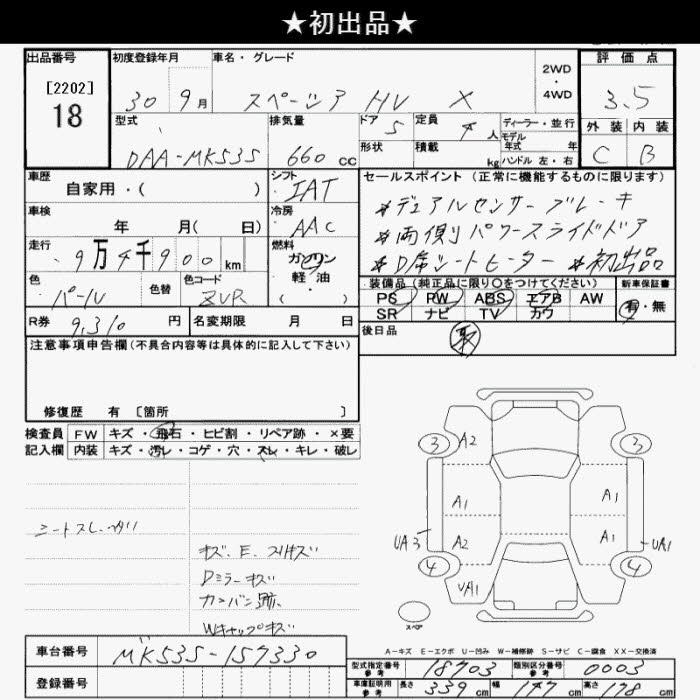 ★初出品★
出品番号 初度登録年月 車名・グレード 2WD・4WD 評価点
[2202]
18
30 9月 スペーシア HV X 3.5
型式 排気量 ドア 定員 ディーラー・並行 外装 内装
DAA-MK53S 660cc 5 4人 モデル年式 年 C B
形状 積載 kg ハンドル 左・右
車歴 シフト セールスポイント(正常に機能するものに限ります)
自家用・( ) IAT
*デュアルセンサーブレーキ
車検 冷房
年 月( 日) AAC
*両側パワースライドドア
走行 燃料
9万4千900km ガソリン
*D席シートヒーター *初出品
色 色替 色コード 軽油・( )
パール ZVR
装備品(純正品に限り○をつけてください) 新車保証書
PS PW ABS エアB AW 有・無
SR ナビ TV カワ
R券 9,310円 名変期限 月 日
後日品
注意事項申告欄(不具合内容等は具体的に記入して下さい)
修復歴 有 〔箇所 〕
検査員 FW キズ・飛石・ヒビ割・リペア跡・×要
記入欄 内装 キズ・汚レ・コゲ・穴・スレ・キレ・破レ
キズ、E、スリキズ
Dミラーキズ
カンバン跡、
Wキャップキズ
3 A2 3
A1 A1
UA3 A2 A1 UA1
4 UA1 4
スペア
A-キズ E-エクボ U-凹み W-補修跡 S-サビ C-腐食 XX-交換済
車台番号 MK53S-157330
型式指定番号 参考 18703 類別区分番号 参考 0003
登録番号
車庫証明用 参考 長さ 339cm 幅 147cm 高さ 178cm